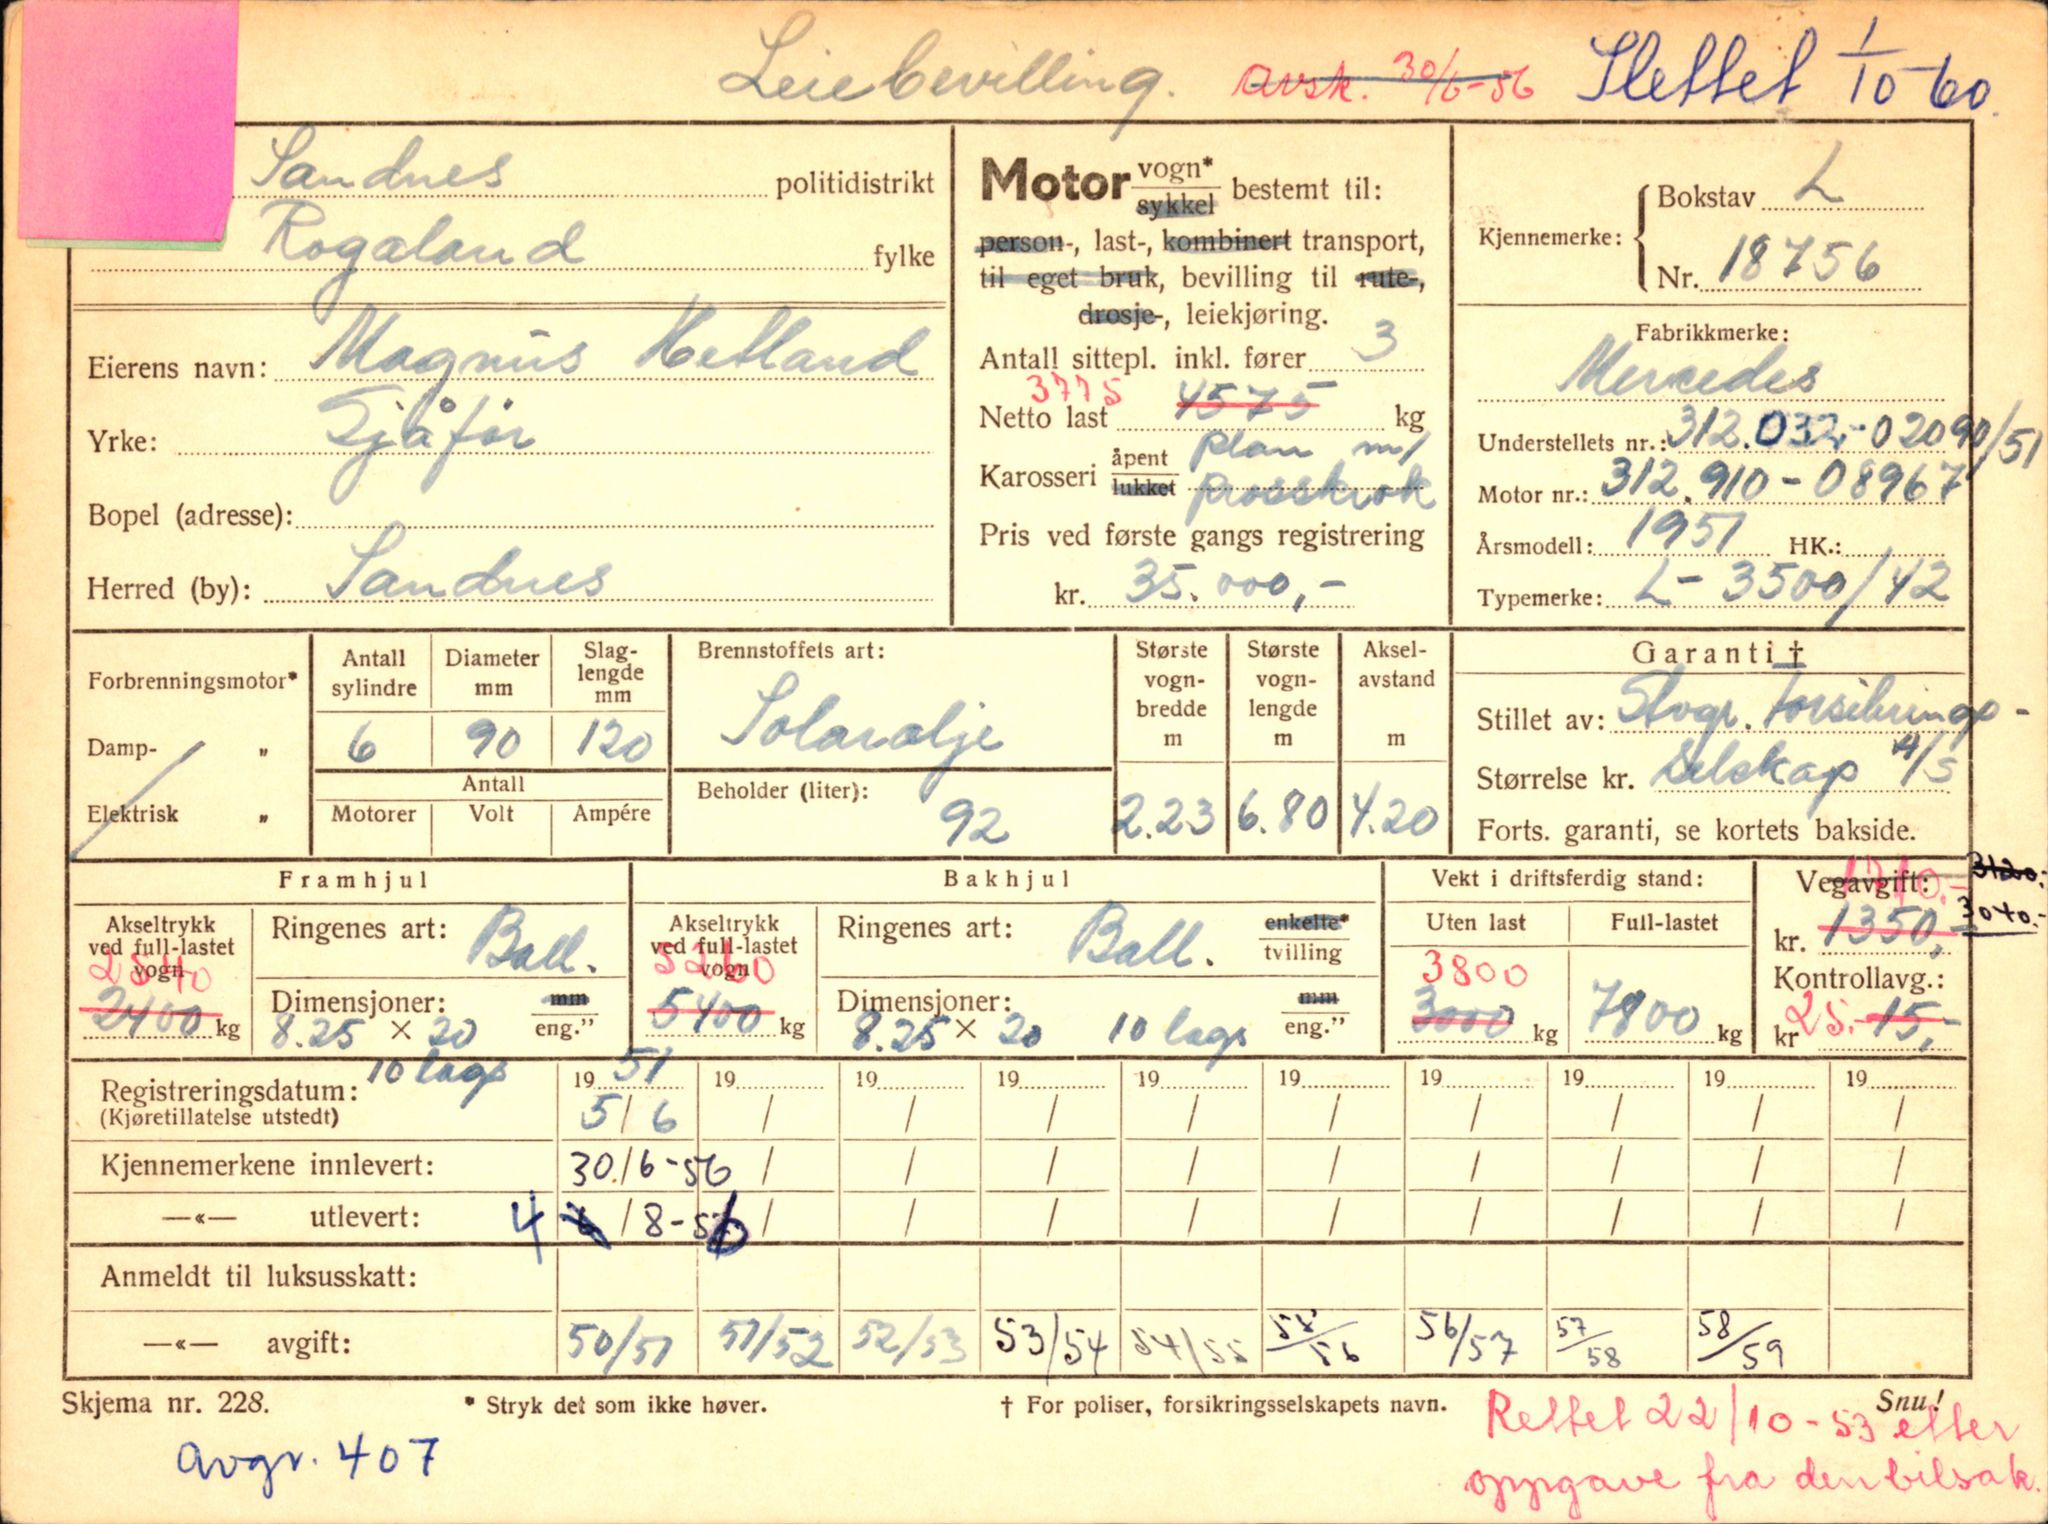 Leiebevilling. avsk. 30/6-56 Slettet 1/10-60.
Sandnes politidistrikt
Rogaland fylke
Eierens navn: Magnus Hetland
Yrke: Sjåfør
Bopel (adresse):
Herred (by): Sandnes
Motor vogn* / sykkel bestemt til:
person-, last-, kombinert transport,
til eget bruk, bevilling til rute-,
drosje-, leiekjøring.
Antall sittepl. inkl. fører 3
3775
Netto last 4575 kg
Karosseri åpent / lukket plan m/
prosskrok
Pris ved første gangs registrering
kr. 35.000,-
Kjennemerke: Bokstav L
Nr. 18756
Fabrikkmerke:
Mercedes
Understellets nr.: 312.032-02090/51
Motor nr.: 312.910-08967
Årsmodell: 1951 HK.:
Typemerke: L-3500/42
Forbrenningsmotor*
Damp- „
Elektrisk „
Antall sylindre
6
Diameter mm
90
Slag-lengde mm
120
Antall
Motorer Volt Ampére
Brennstoffets art:
Solarolje
Beholder (liter):
92
Største vogn-bredde m
2.23
Største vogn-lengde m
6.80
Aksel-avstand m
4.20
Garanti †
Stillet av: Stvgr. Forsikrings-
Størrelse kr. Selskap A/S
Forts. garanti, se kortets bakside.
Framhjul
Akseltrykk
ved full-lastet
vogn
2540
2400 kg
Ringenes art: Ball.
Dimensjoner: mm / eng.”
8.25 × 20
10 lags
Bakhjul
Akseltrykk
ved full-lastet
vogn
5260
5400 kg
Ringenes art: Ball. enkelte* / tvilling
Dimensjoner: mm / eng.”
8.25 × 20 10 lags
Vekt i driftsferdig stand:
Uten last Full-lastet
3800
3000 kg 7800 kg
Vegavgift: 3120.-
kr. 1350,- 3040.-
Kontrollavg.:
kr 25.- 15,-
Registreringsdatum: 19 51 19 19 19 19 19 19 19 19 19
(Kjøretillatelse utstedt) 5/6 / / / / / / / / /
Kjennemerkene innlevert: 30/6-56 / / / / / / / / /
—«— utlevert: 4 / 8-56 / / / / / / / / /
Anmeldt til luksusskatt:
—«— avgift: 50/51 51/52 52/53 53/54 54/55 55/56 56/57 57/58 58/59
Skjema nr. 228. * Stryk det som ikke høver. † For poliser, forsikringsselskapets navn. Snu!
Rettet 22/10-53 etter
oppgave fra den bilsak.
Avgr. 407